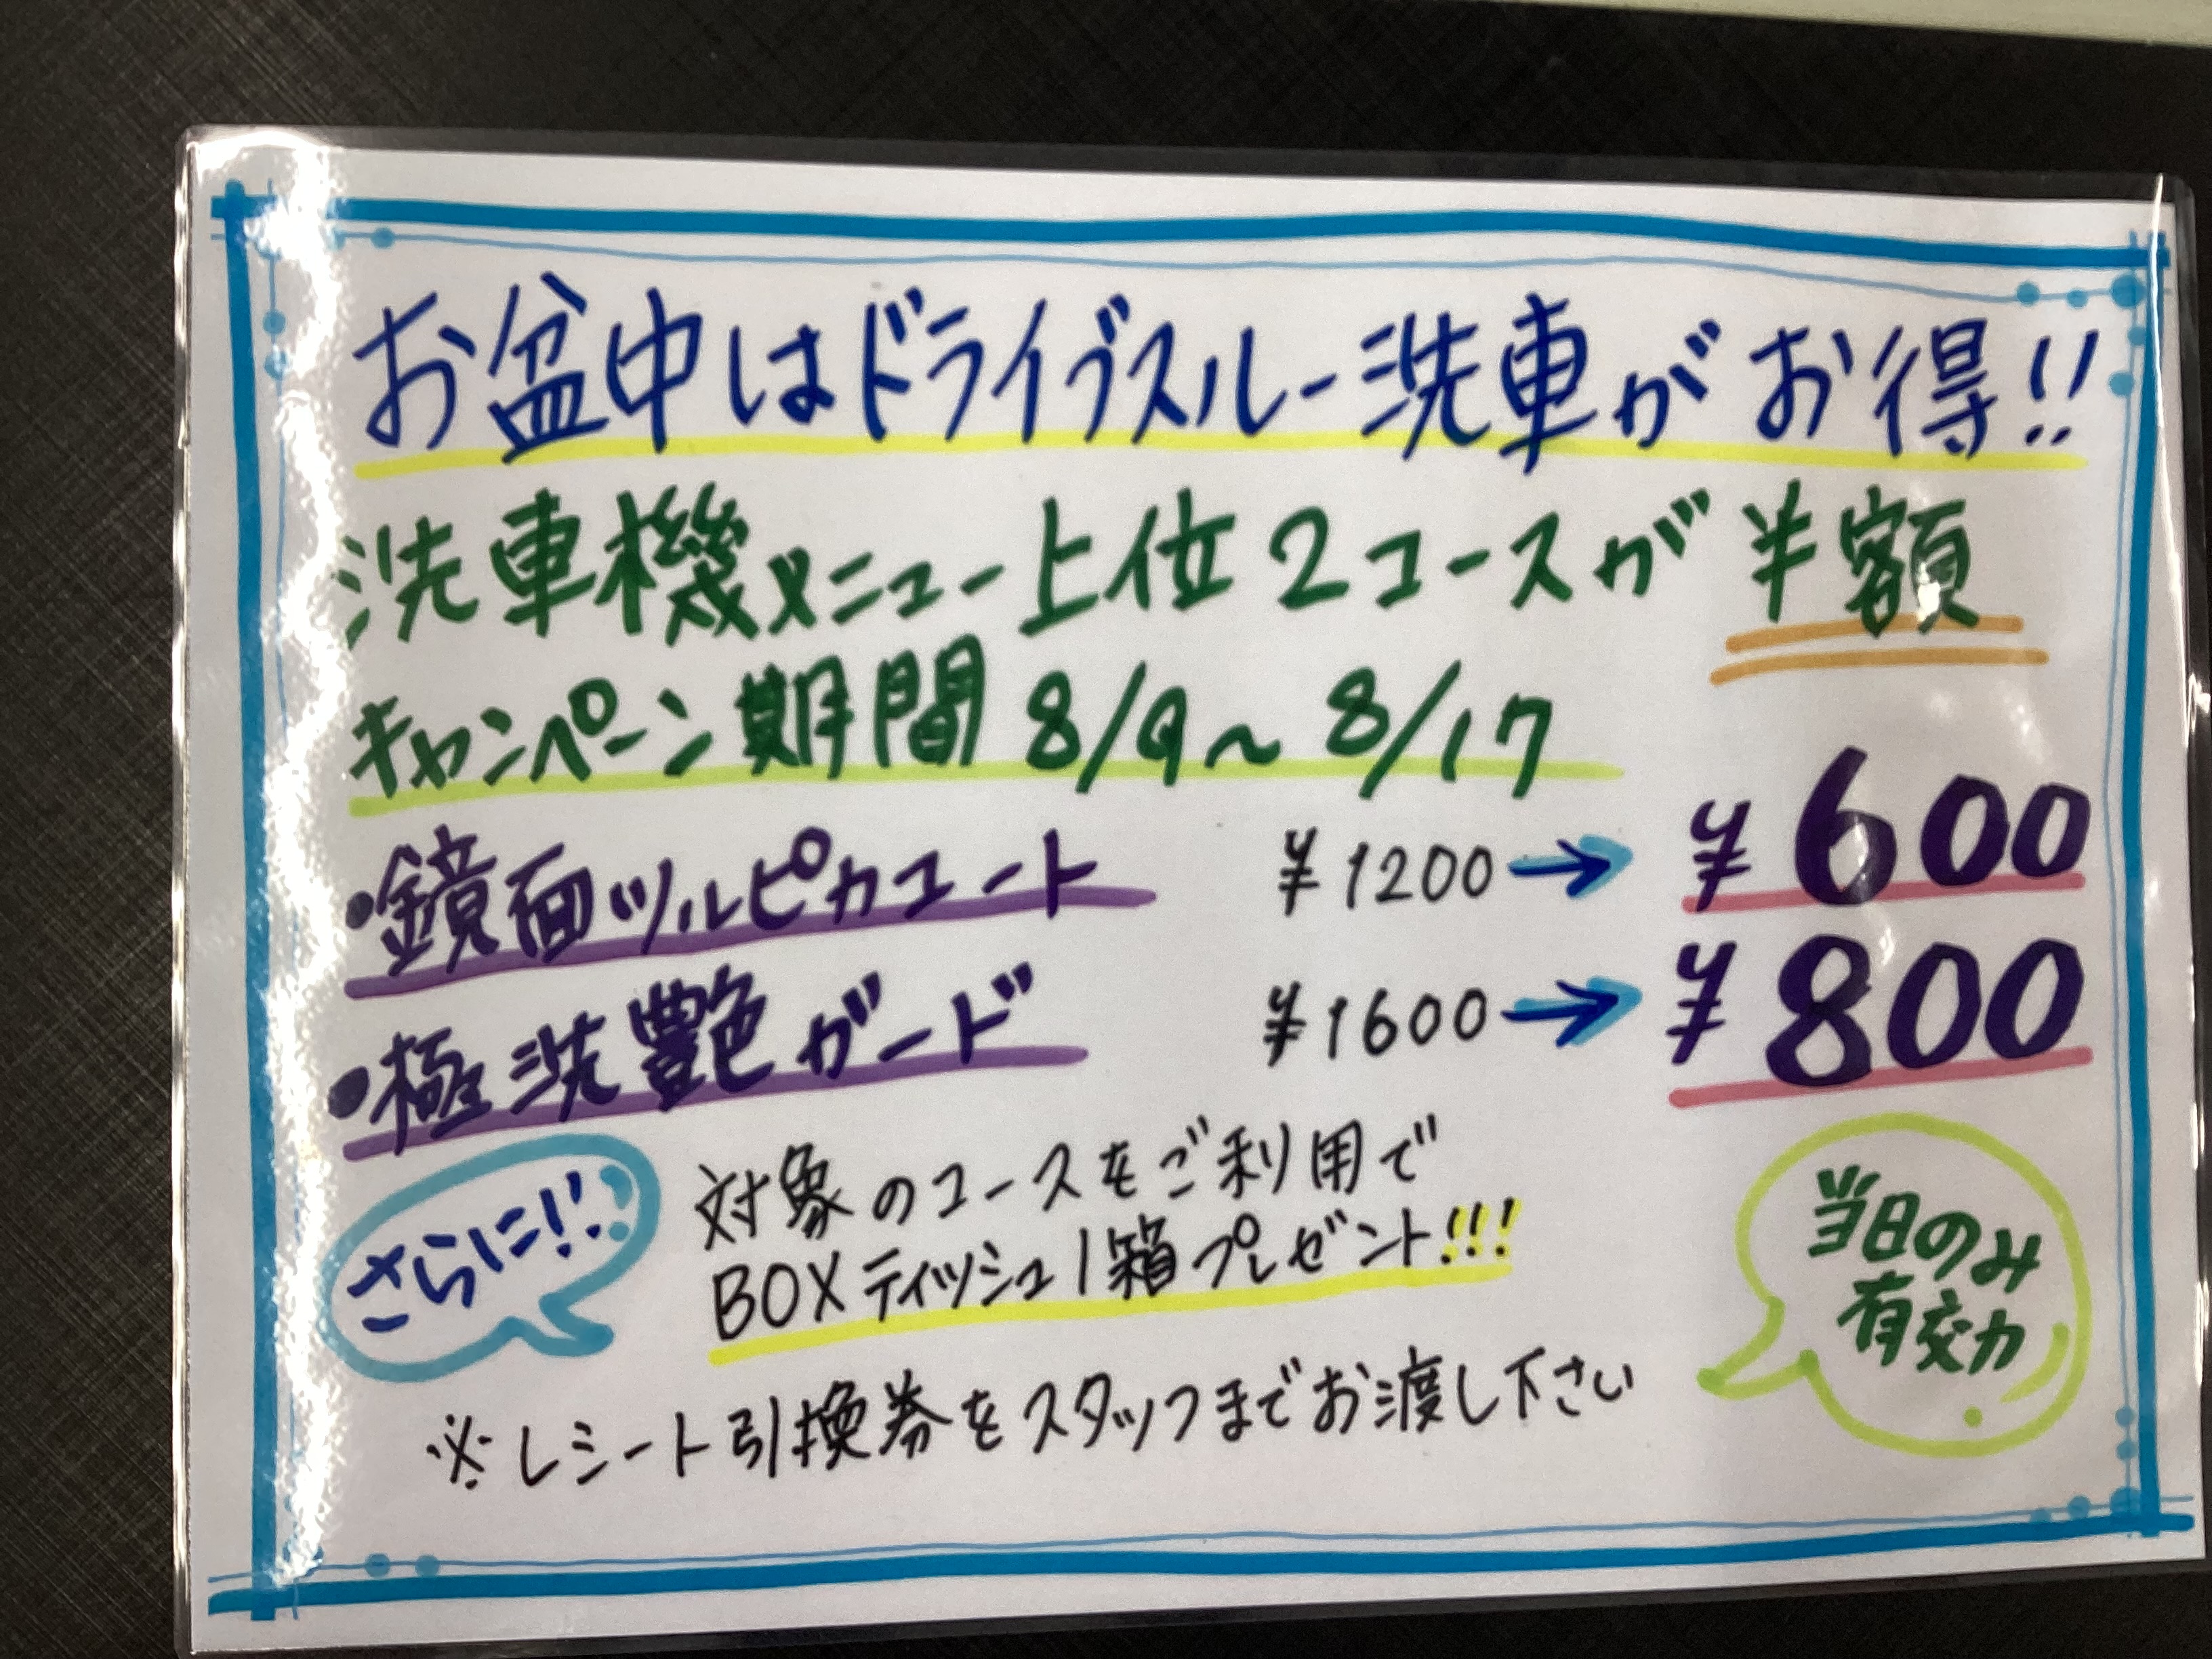 お盆中はドライブスルー洗車がお得!!
洗車機メニュー上位2コースが半額
キャンペーン期間 8/9～8/17
・鏡面ツルピカコート ¥1200→¥600
・極洗艶ガード ¥1600→¥800
さらに!!
対象のコースをご利用で
BOXティッシュ1箱プレゼント!!!
当日のみ
有効
※レシート引換券をスタッフまでお渡し下さい